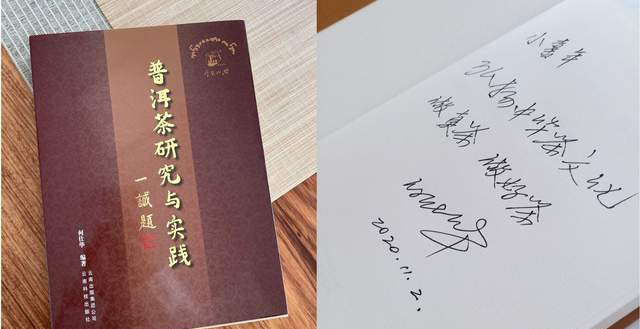 普洱茶研究与实践
一誠題
何仕华 编著
云南出版集团公司
云南科技出版社
弘扬中华茶文化
做真茶 做好茶
2020.11.2.